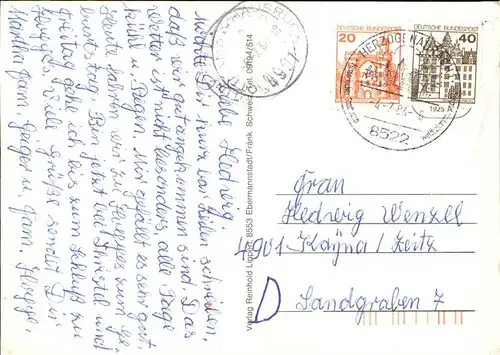 Liebe Hedwig
Möchte Dir kurz ein Zeilen schreiben,
daß wir gut angekommen sind. Das
Wetter ist nicht besonders, alle Tage
kühl u. Regen. Mir gefällt es sehr gut.
Heute fahren wir zu zum Ge-
burtstag. Bin jetzt bei und
Freitag gehe ich bis zum Schluß zu
Viele Grüße sendet Dir
Martha Fam. Geiger u. Fam.
Verlag Reinhold Lippert 8553 Ebermannstadt/Fränk. Schweiz Tel. 09194/514
20
DEUTSCHE BUNDESPOST
DEUTSCHE BUNDESPOST
40
HERZOGENAURACH
8522
Frau
Hedwig Wenzel
4901 Kayna/Zeitz
D Landgraben 7